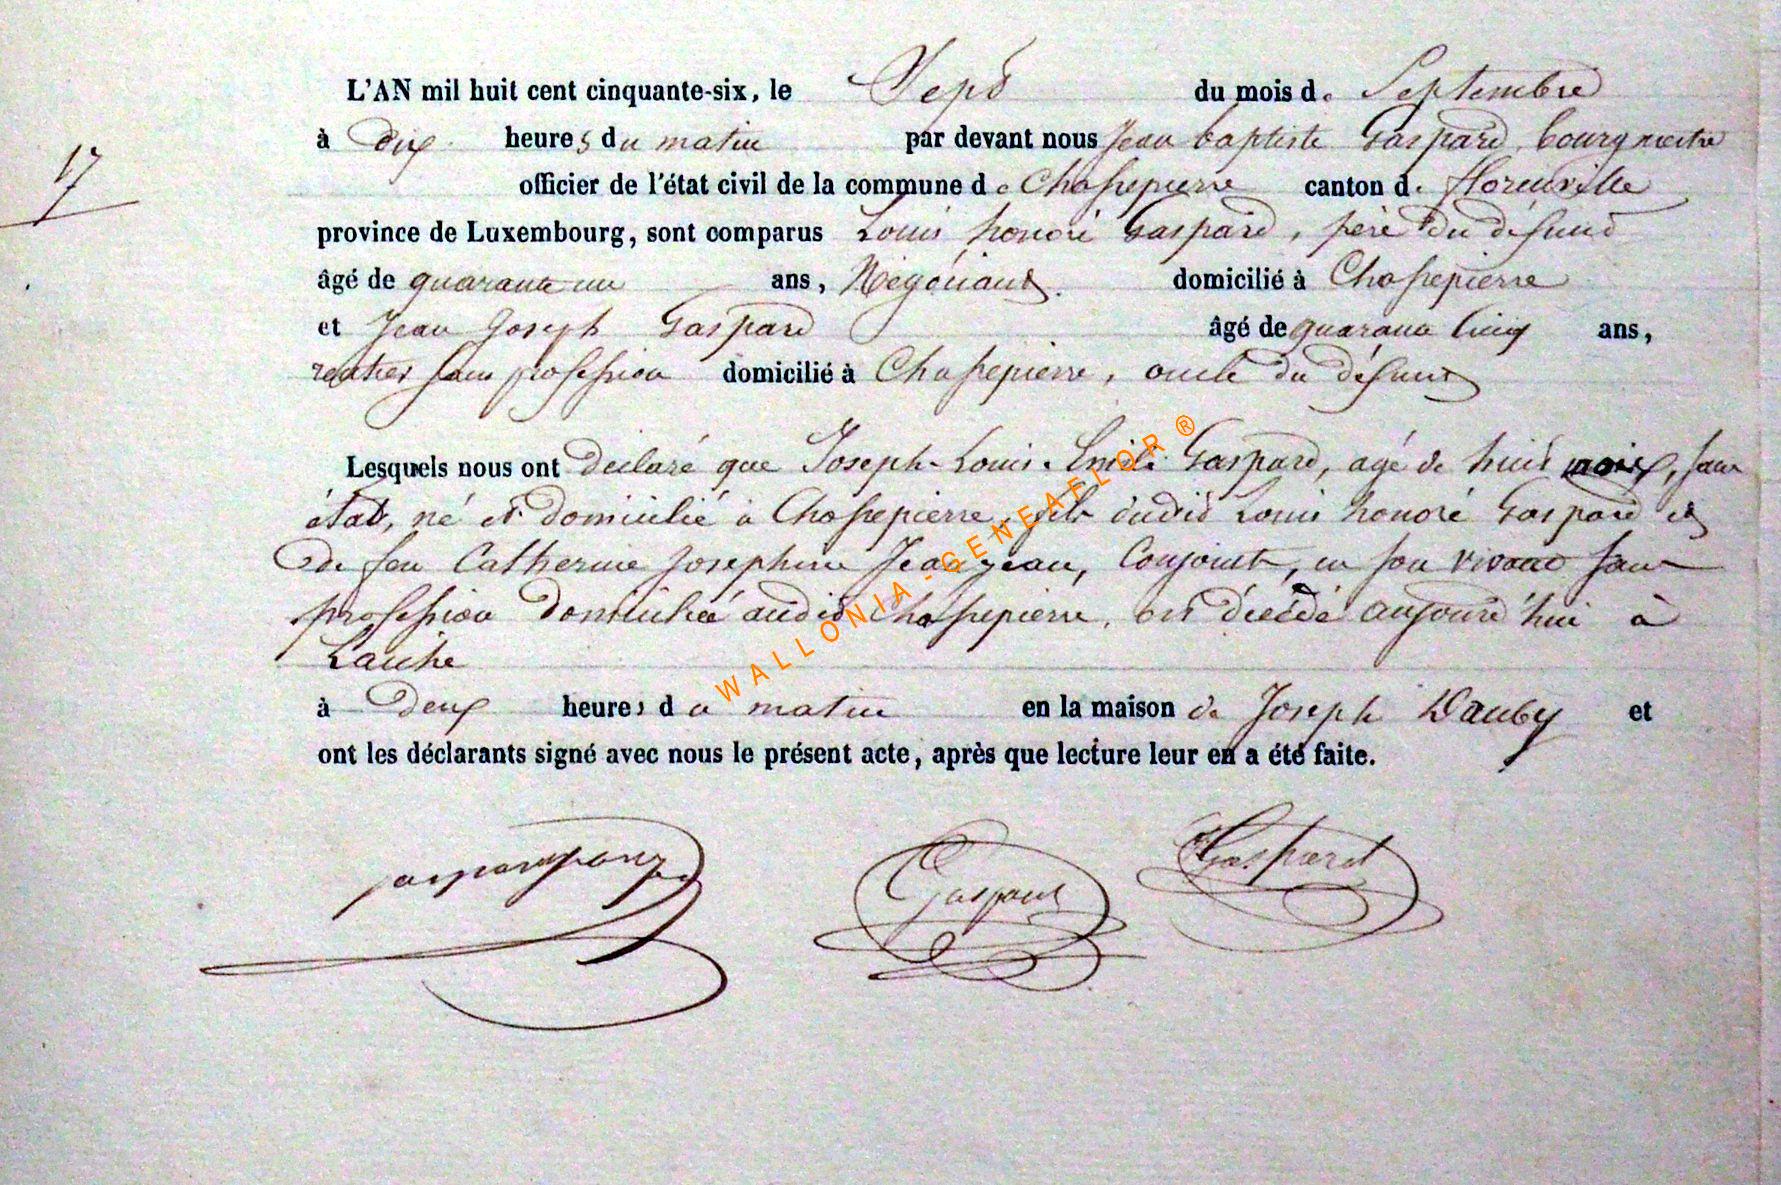 L'AN mil huit cent cinquante-six, le Sept du mois de Septembre
17
à dix heures du matin par devant nous Jean baptiste Gaspard, bourgmestre
officier de l'état civil de la commune de Chassepierre canton de florenville
province de Luxembourg, sont comparus Louis honoré Gaspard, père du défunt
âgé de quarante un ans, Négociant domicilié à Chassepierre
et Jean Joseph Gaspard âgé de quarante Cinq ans,
rentier sans profession domicilié à Chassepierre, oncle du défunt
Lesquels nous ont déclaré que Joseph-Louis-Emile Gaspard, agé de huit mois, sans
état, né et domicilié à Chassepierre, fils dudit Louis honoré Gaspard et
de feu Catherine Josephine Jeanjean, Conjoints, en son vivant sans
profession domiciliée audit Chassepierre, est décédé aujourd'hui à
Laiche
à deux heures du matin en la maison de Joseph Dauby et
ont les déclarants signé avec nous le présent acte, après que lecture leur en a été faite.
Gaspard Gaspard
WALLONIA-GENEAFLOR ®